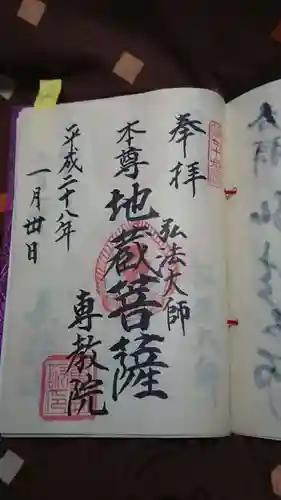 奉拝
弘法大師
本尊 地蔵菩薩
専教院
平成二十八年
一月卅日